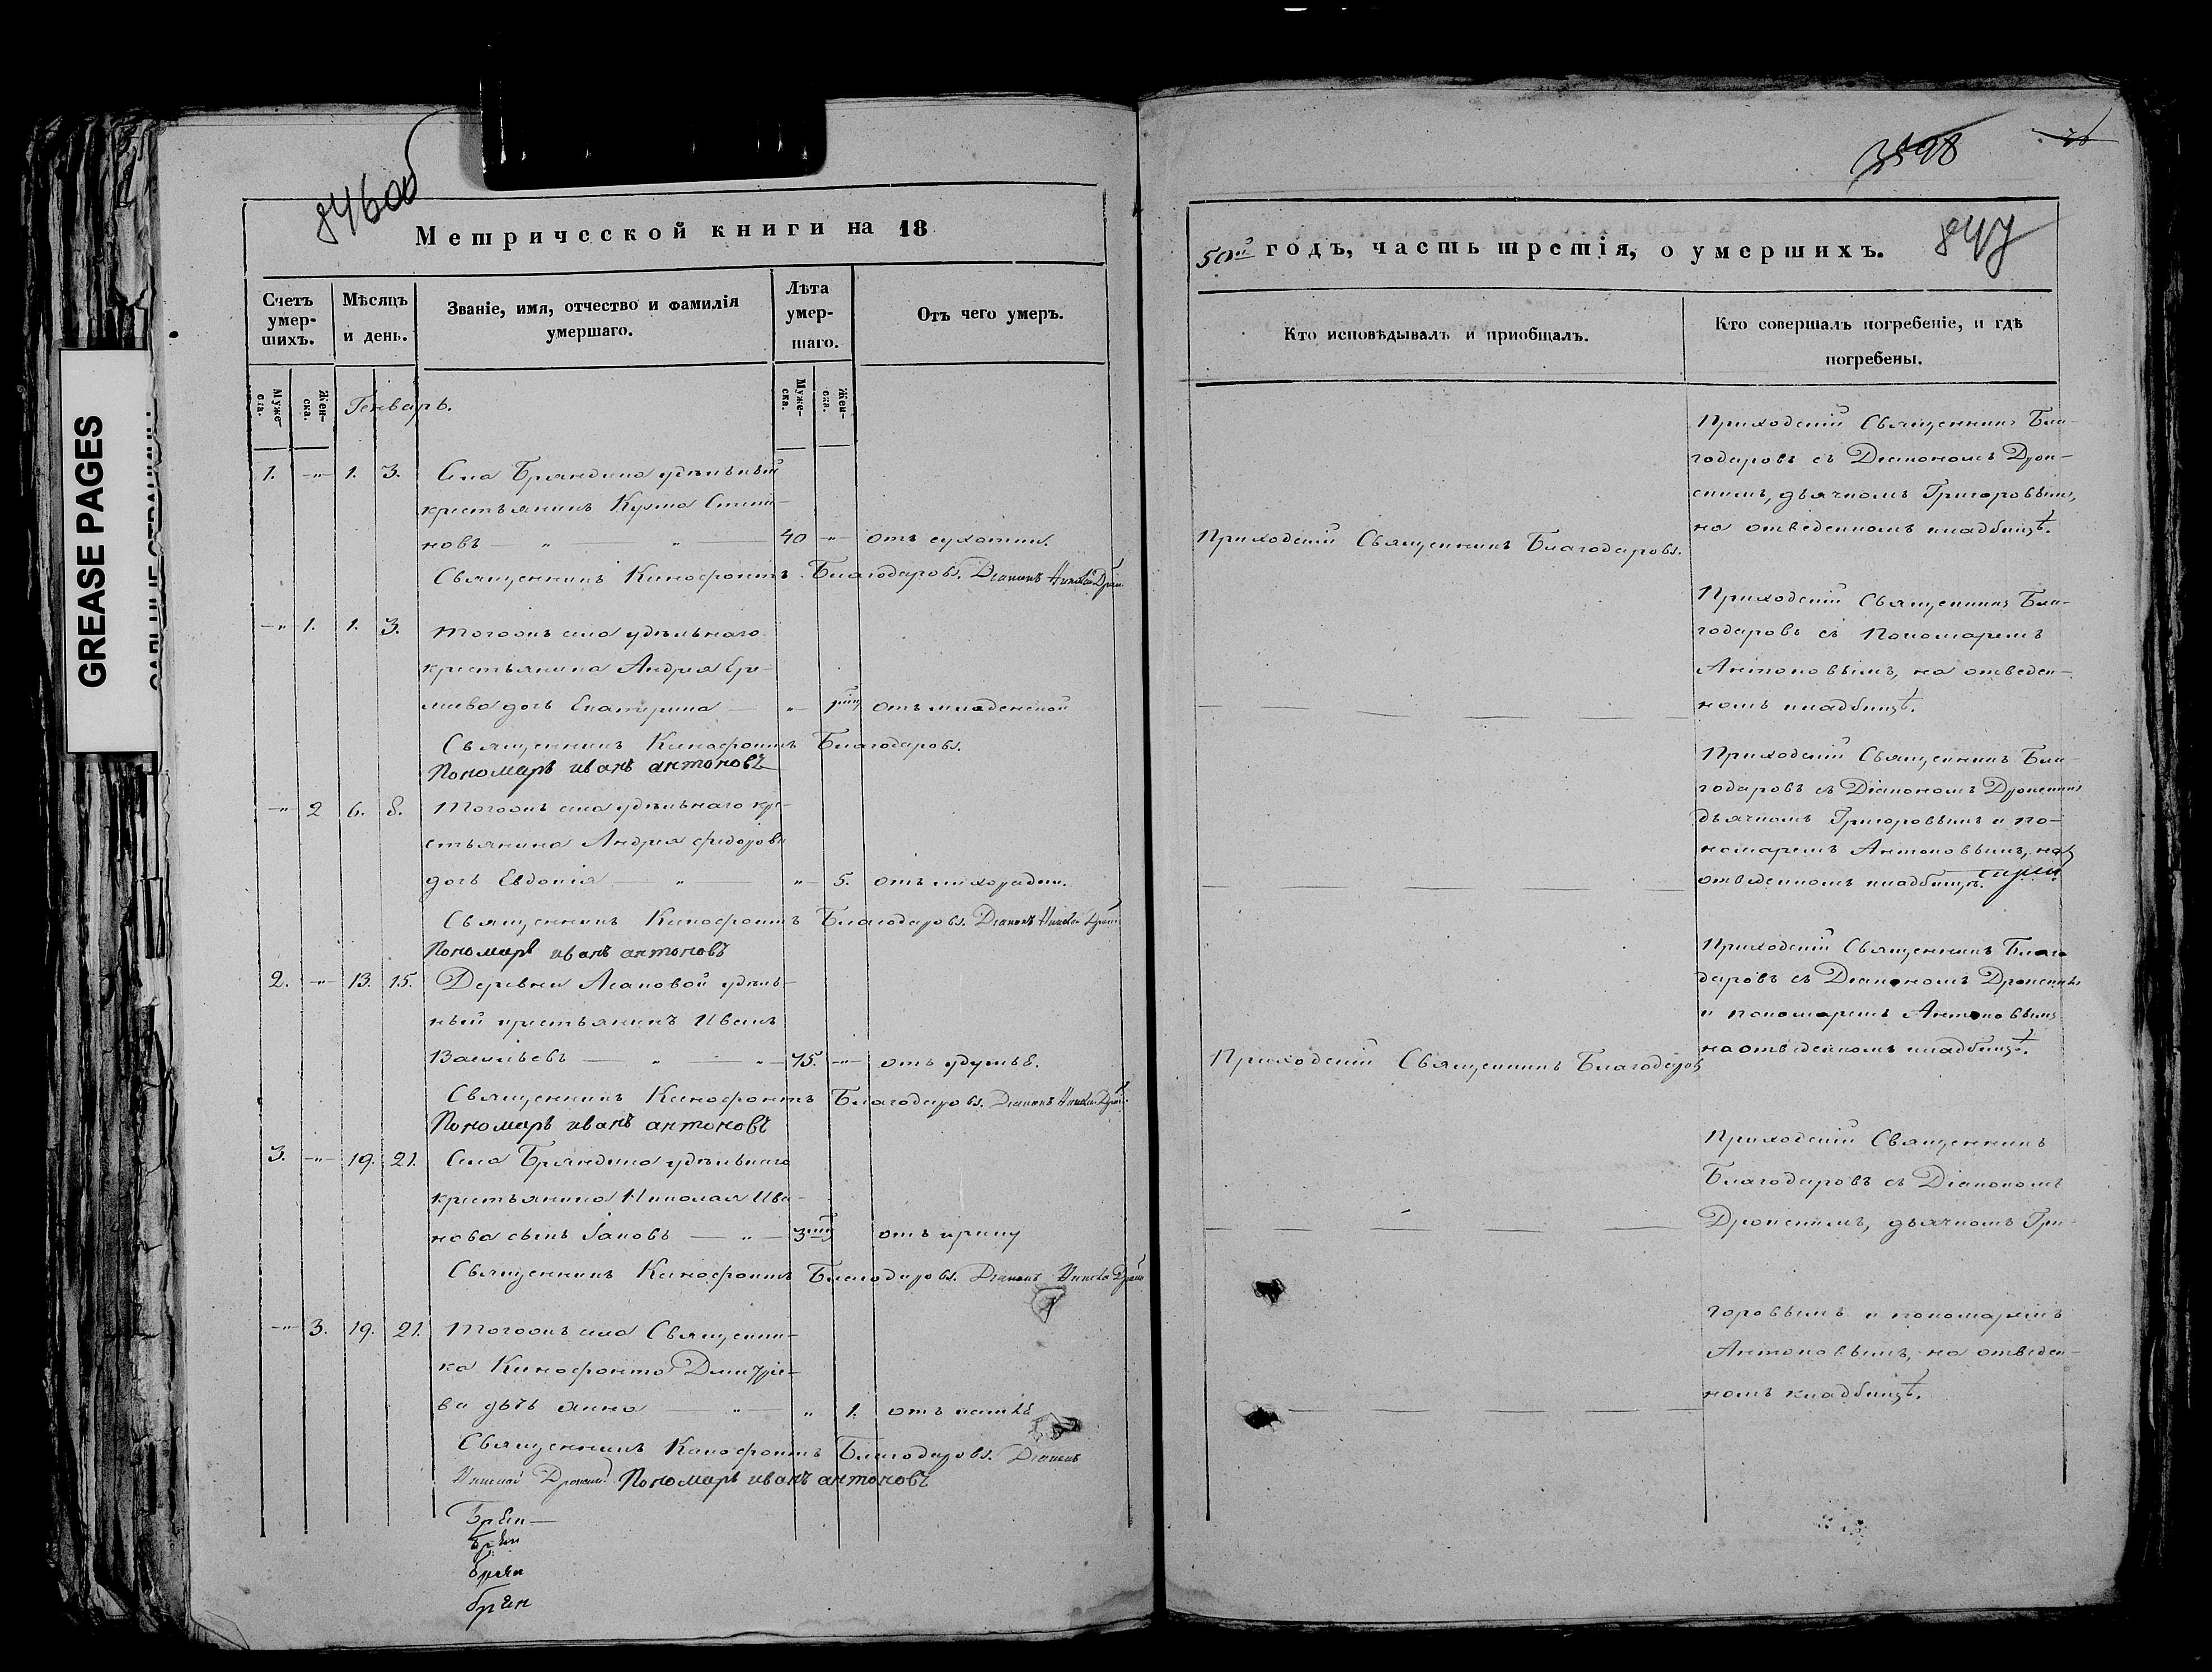 GREASE PAGES
846об
Метрической книги на 18
Счетъ умер-шихъ.
Мѣсяцъ и день.
Званіе, имя, отчество и фамилія умершаго.
Лѣта умер-шаго.
Отъ чего умеръ.
Муже-ска.
Жен-ска.
Генварь.
Муже-ска.
Жен-ска.
1. -"- 1. 3. Села Бряндина удѣльный
крестьянинъ Кузма Степа-
новъ — " — " — 40 -"- отъ сухотки.
Священникъ Ксенофонтъ Благодаровъ. Діаконъ Николай
-"- 1. 1. 3. Тогожъ села удѣльнаго
крестьянина Андрея Ере-
меева дочь Екатерина — " отъ младенской
Священникъ Ксенофонтъ Благодаровъ.
Пономарь иванъ антоновъ
-"- 2 6. 8. Тогожъ села удѣльнаго кре-
стьянина Андрея Федорова
дочь Евдокія — " — " 5. отъ лихорадки.
Священникъ Ксенофонтъ Благодаровъ. Діаконъ Николай
Пономарь иванъ антоновъ
2. -"- 13. 15. Деревни Асановой удѣль-
ный крестьянинъ Иванъ
Васильевъ — " — " — 75. -"- отъ удушья.
Священникъ Ксенофонтъ Благодаровъ. Діаконъ Николай
Пономарь иванъ антоновъ
3. -"- 19. 21. Села Бряндина удѣльнаго
крестьянина Николая Ива-
нова сынъ Іаковъ — " — отъ крику
Священникъ Ксенофонтъ Благодаровъ. Діаконъ
-"- 3. 19. 21. Тогожъ села Священни-
ка Ксенофонта Дмитріе-
ва дочь Анна — " — " 1. отъ кашля
Священникъ Ксенофонтъ Благодаровъ. Діаконъ
Николай Пономарь иванъ антоновъ
3598
847
50й годъ, часть третія, о умершихъ.
Кто исповѣдывалъ и пріобщалъ.
Кто совершалъ погребеніе, и гдѣ погребены.
Приходскій Священникъ Благодаровъ.
Приходскій Священникъ Бла-
годаровъ съ Діакономъ Дрон-
скимъ, дьячкомъ Григоровымъ,
на отведенномъ кладбищѣ.
Приходскій Священникъ Бла-
годаровъ съ Пономаремъ
Антоновымъ, на отведен-
номъ кладбищѣ.
Приходскій Священникъ Бла-
годаровъ съ Діакономъ Дронскимъ
дьячкомъ Григоровымъ и по-
номаремъ Антоновымъ, на
отведенномъ кладбищѣ.
Приходскій Священникъ Благодаровъ
Приходскій Священникъ Благо
даровъ съ Діакономъ Дронскимъ
и пономаремъ Антоновымъ
на отведенномъ кладбищѣ.
Приходскій Священникъ
Благодаровъ съ Діакономъ
Дронскимъ, дьячкомъ Гри-
горовымъ и пономаремъ
Антоновымъ, на отведен-
номъ кладбищѣ.